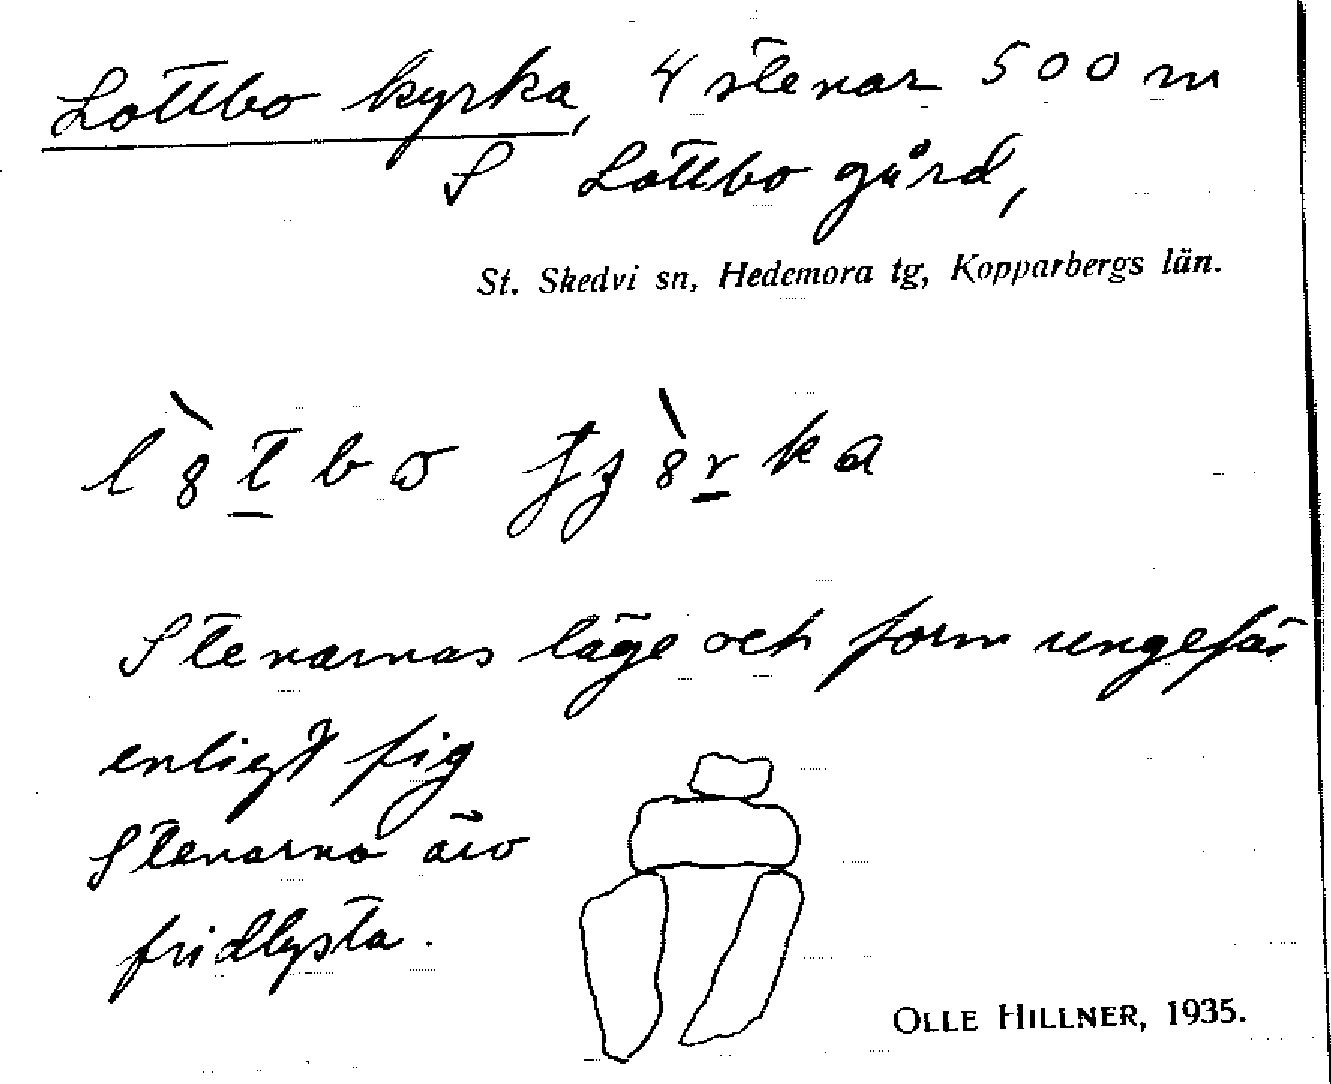 Lottbo kyrka, 4 stenar 500 m
S Lottbo gård,
St. Skedvi sn, Hedemora tg, Kopparbergs län.
Stenarnas läge och form ungefär
enligt fig
Stenarna äro
fridlysta.
OLLE HILLNER, 1935.